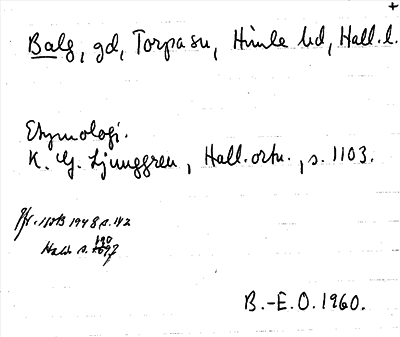 +
Balg, gd, Torpa sn, Himle hd, Hall. l.
Etymologi.
K. G. Ljunggren, Hall. ortn., s. 1103.
Jfr. 1948 s. 142
s.
B.-E.O. 1960.